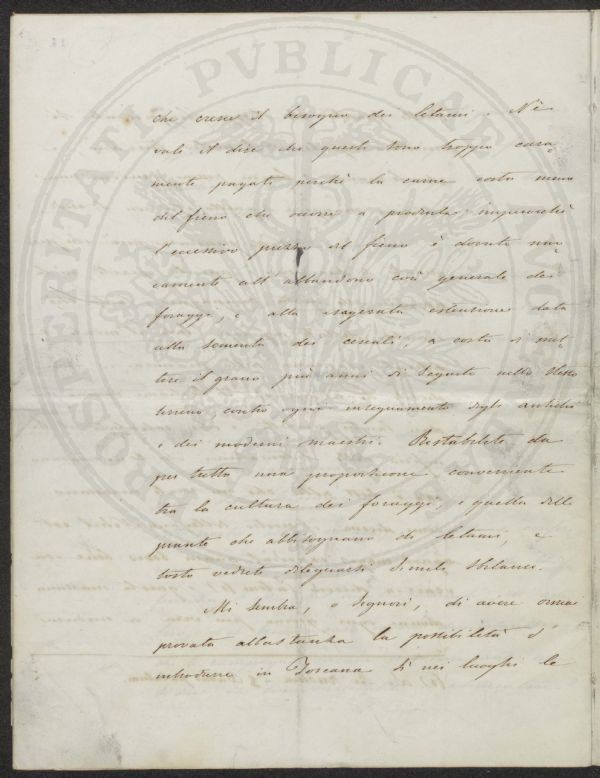 PROSPERITATI PVBLICAE AVGENDAE
che cresce il bisogno dei letami. Nè
vale il dire che questi sono troppo cara=
mente pagati perchè la carne costa meno
del fieno che occorre a produrla, imperocchè
l'eccessivo prezzo del fieno è dovuto uni=
camente all'abbandono così generale dei
foraggi, e alla esagerata estensione data
alla sementa dei cereali, a costo di met=
tere il grano più anni di seguito nello stesso
terreno, contro ogni insegnamento degli antichi
e dei moderni maestri. Ristabilite da
per tutto una proporzione conveniente
tra la cultura dei foraggi, e quella delle
piante che abbisognano di letami, e
tosto vedrete dileguarsi simile sbilancio.
Mi sembra, o Signori, di avere ormai
provata abbastanza la possibilità d'
introdurre in Toscana di nei luoghi le